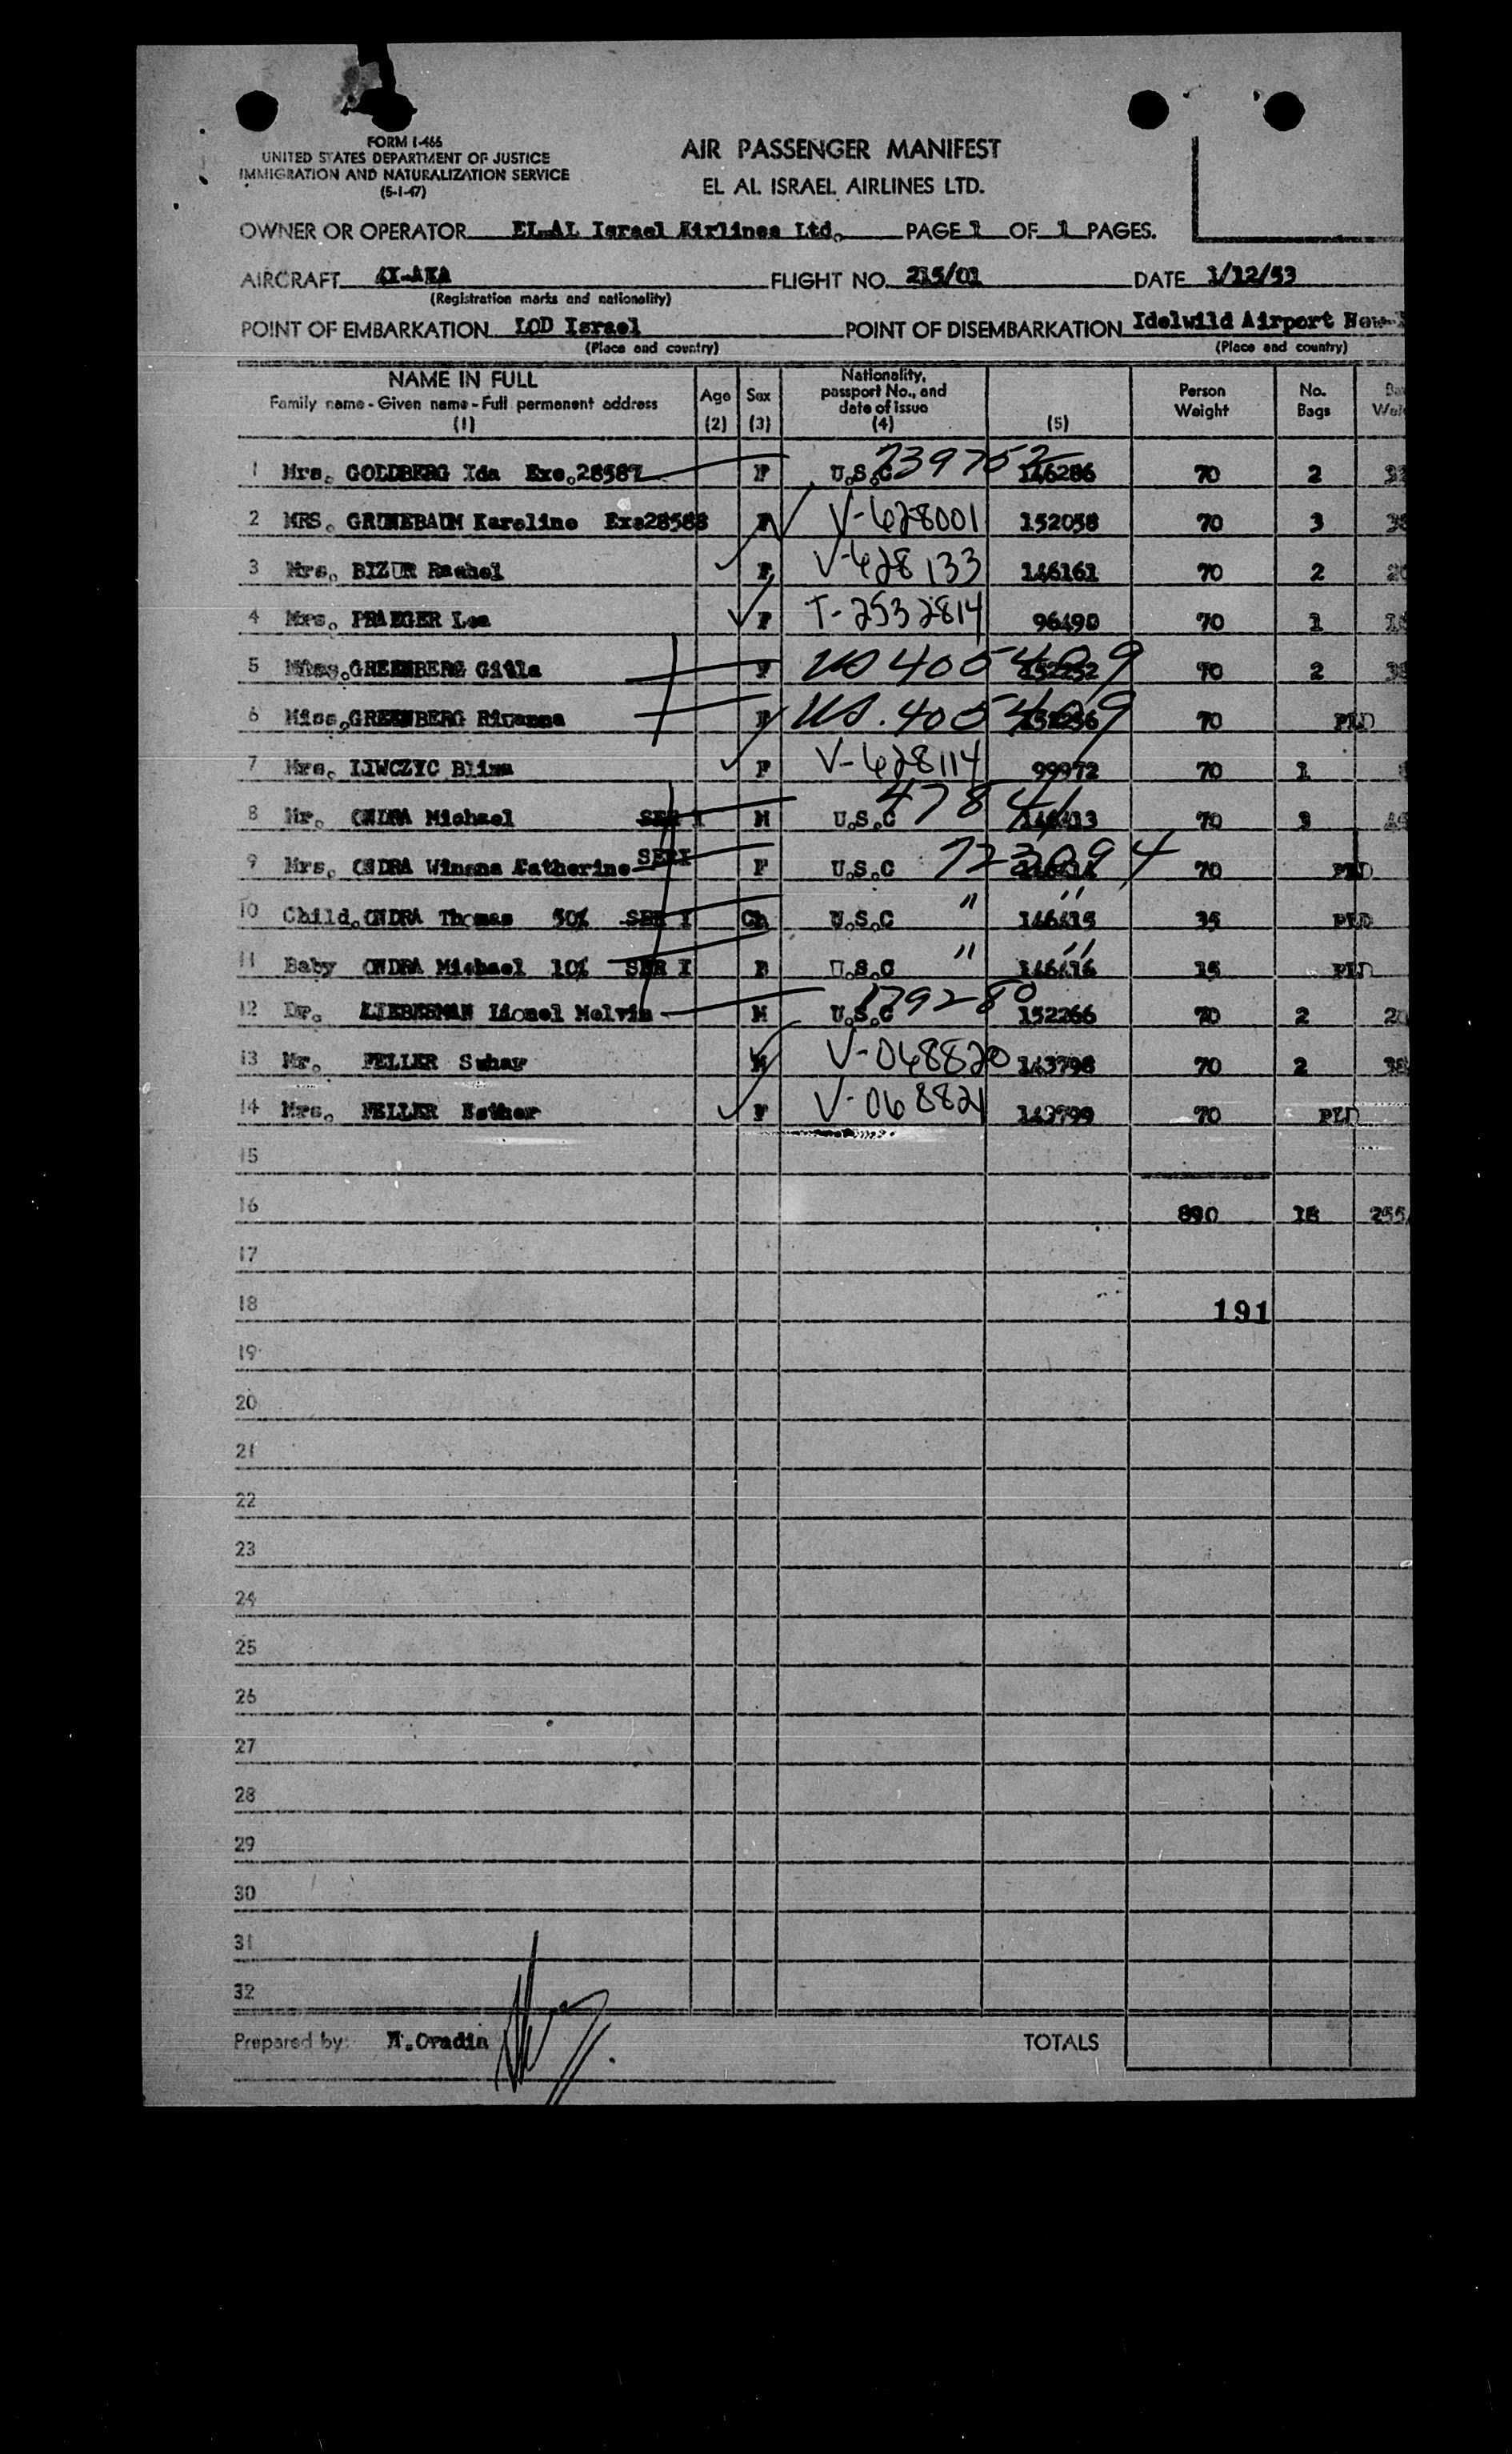 FORM I-466
UNITED STATES DEPARTMENT OF JUSTICE
IMMIGRATION AND NATURALIZATION SERVICE
(5-1-47)
AIR PASSENGER MANIFEST
EL AL ISRAEL AIRLINES LTD.
OWNER OR OPERATOR EL.AL Israel Airlines Ltd. PAGE 1 OF 1 PAGES.
AIRCRAFT 4X-AKA FLIGHT NO. 215/01 DATE 1/12/53
(Registration marks and nationality)
POINT OF EMBARKATION LOD Israel POINT OF DISEMBARKATION Idelwild Airport New
(Place and country) (Place and country)
NAME IN FULL Family name - Given name - Full permanent address (1) Age (2) Sex (3) Nationality, passport No., and date of issue (4) (5) Person Weight No. Bags
1 Mrs. GOLDBERG Ida Exe.28587 F U.S.C 739752 146286 70 2
2 MRS. GRUNEBAUM Karoline Exe28588 F V-628001 152058 70 3
3 Mrs. BIZUR Rachel F V-628133 146161 70 2
4 Mrs. PRAEGER Lea F T-2532814 96490 70 1
5 GREENBERG Gitla F US 4005409 152252 70 2
6 Miss. GREENBERG Rivanna F US. 4005409 70 PLD
7 Mrs. LIWCZYC Blima F V-628114 99972 70 1
8 Mr. ONDRA Michael SER I M U.S.C 47841 146413 70 3
9 Mrs. ONDRA Winona Catherine SERI F U.S.C 723094 70 PLD
10 Child. ONDRA Thomas 50% SER I Ch U.S.C " " 146415 35 PLD
11 Baby ONDRA Michael 10% SER I B U.S.C " " 146416 15 PLD
12 Dr. LIEBESMAN Lionel Melvin M U.S.C 179280 152266 70 2 20
13 Mr. FELLER Suhay M V-068820 143798 70 2 38
14 Mrs. FELLER Esther F V-068821 143799 70 PLD
15
16 890 18 255
17
18 191
19
20
21
22
23
24
25
26
27
28
29
30
31
32
Prepared by: N.Ovadia TOTALS